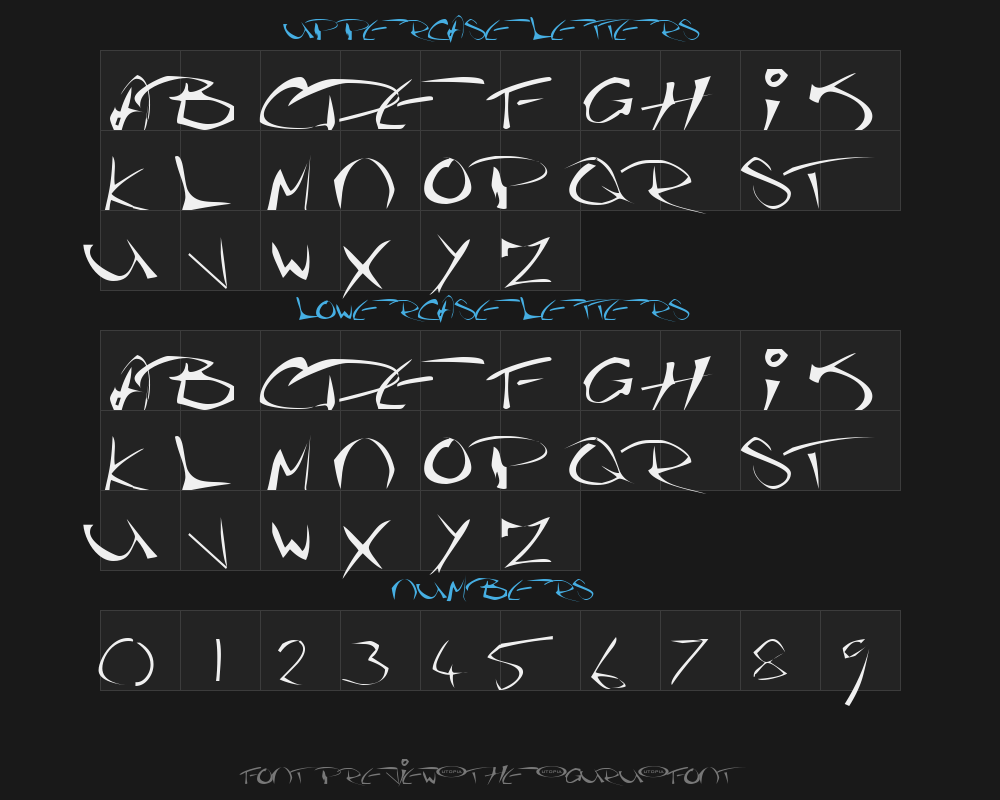 UPPERCASE LETTERS
A B C D E F G H i J
K L M N O P Q R S T
U V W X Y Z
LOWERCASE LETTERS
A B C D E F G H i J
K L M N O P Q R S T
U V W X Y Z
NUMBERS
0 1 2 3 4 5 6 7 8 9
FONT PREViEW UTOPIA THE UTOPIA UTOPIA FONT